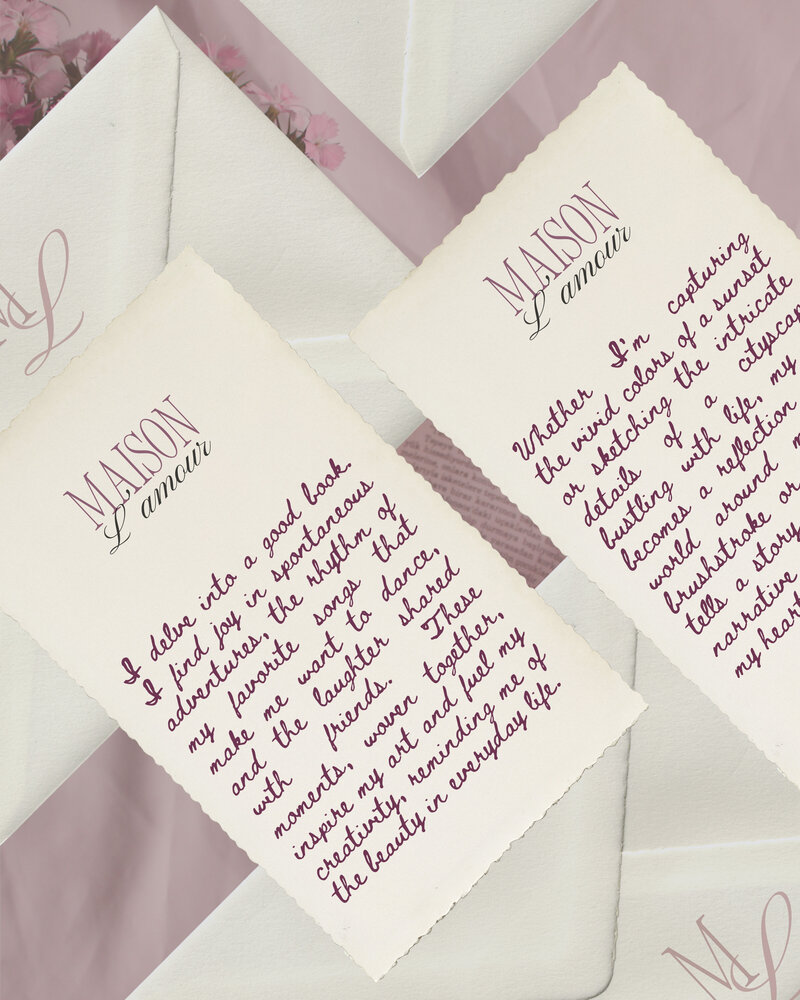 MAISON
L'amour
I delve into a good book.
I find joy in spontaneous
adventures, the rhythm of
my favorite songs that
make me want to dance,
and the laughter shared
with friends. These
moments, woven together,
inspire my art and fuel my
creativity, reminding me of
the beauty in everyday life.
MAISON
L'amour
Whether I'm capturing
the vivid colors of a sunset
or sketching the intricate
details of a
bustling with life, my
becomes a reflection
world around
brushstroke or
tells a story
narrative
my heart
ML
ML